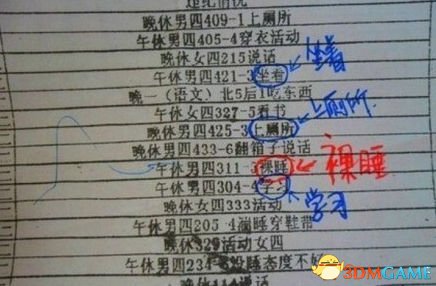 违纪情况
晚休男四409-1上厕所
午休男四405-4穿衣活动
晚休女四215说话
午休男四421-3坐着
坐着
晚一(语文)北5后1吃东西
午休女四327-5看书
晚休男四425-3上厕所
上厕所
晚休男四433-6翻箱子说话
午休男四311-3裸睡
裸睡
午休男四304-4学习
学习
晚休女四333活动
午休男四205-4 睡穿鞋带
晚休329活动女四
午休男四234 睡态度不好
3DMGAME